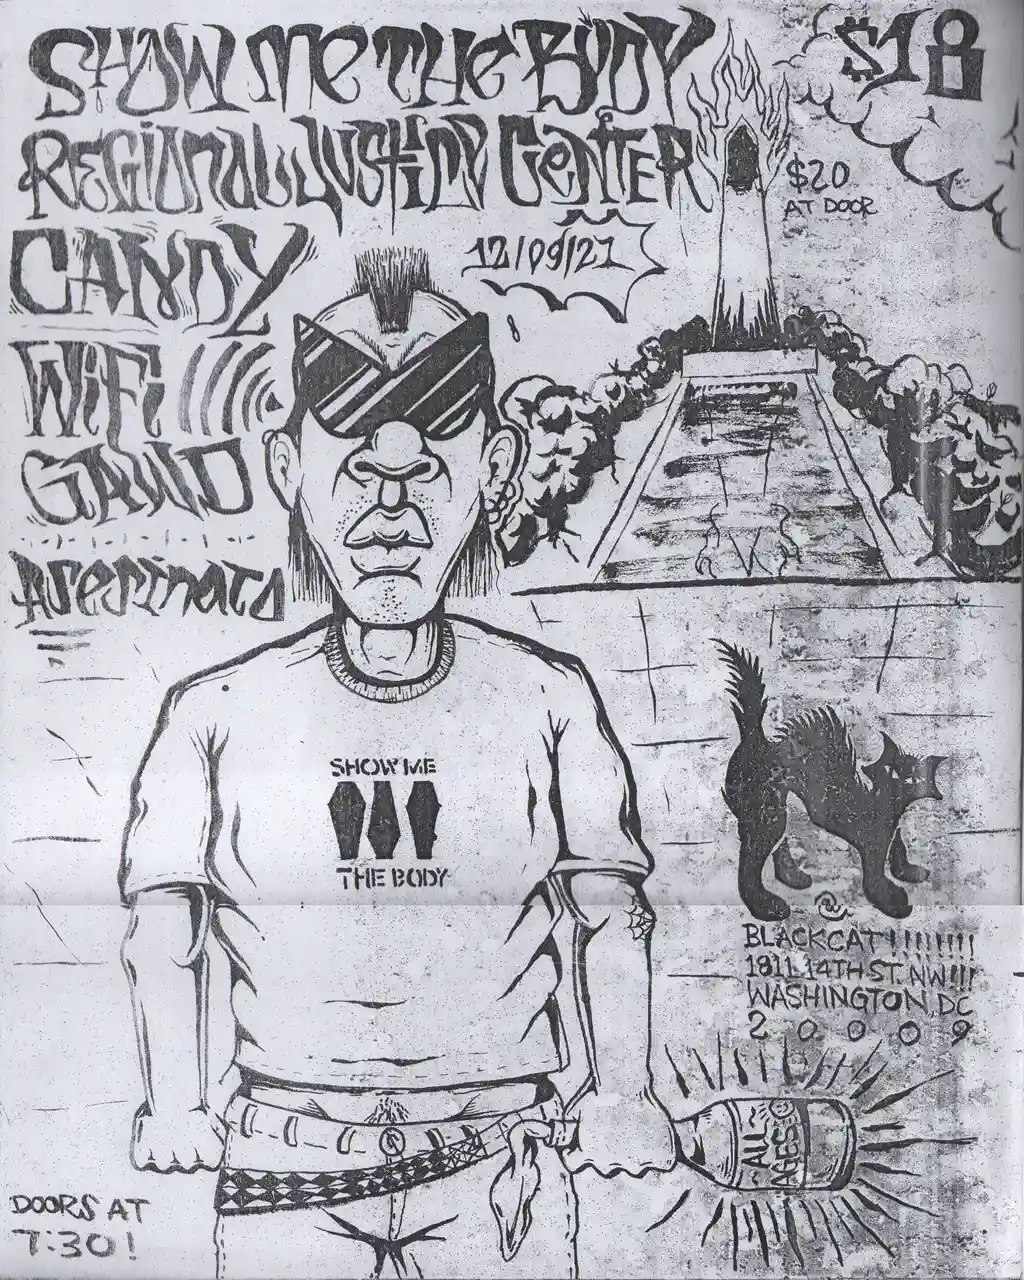 SHOW ME THE BODY
$18
REGIONAL JUSTICE CENTER
$20
AT DOOR
CANDY
12/09/21
WiFi
GAWD
Asesinato
SHOW ME
THE BODY
@
BLACKCAT!!!!!!!!
1811 14TH ST. NW!!!
WASHINGTON, DC
2 0 0 0 9
~ALL~
AGES
DOORS AT
7:30!